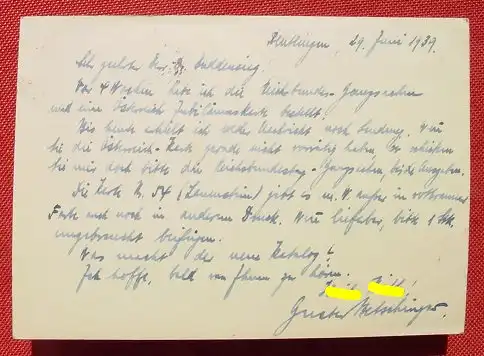 Reutlingen, 29. Juni 1939.
Sehr geehrter Herr Dr. Buddensieg.
Vor 4 Wochen habe ich die Reichsbundes-Ganzsachen
und eine Österreich Jubiläumskarte bestellt.
Bis heute erhielt ich weder Nachricht noch Sendung. Wenn
Sie die Österreich-Karte gerade nicht vorrätig haben so schicken
Sie mir doch bitte die Reichsbundestag-Ganzsachen, beide Ausgaben.
Die Karte Nr. 54 gibt es m. W. außer in
Farbe auch noch in anderem Druck. Wenn lieferbar, bitte 1 Stk.
ungebraucht beifügen.
Was macht der neue Katalog?
Ich hoffe, bald von Ihnen zu hören.
Gustav